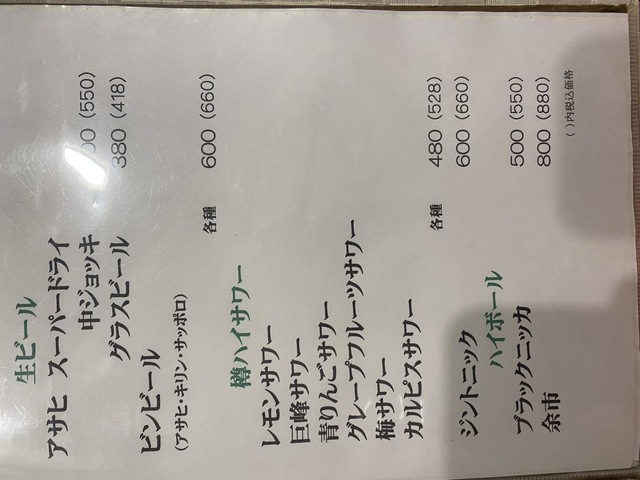 生ビール
アサヒ スーパードライ
中ジョッキ 00 (550)
グラスビール 380 (418)
ビンビール 各種 600 (660)
(アサヒ・キリン・サッポロ)
樽ハイサワー
レモンサワー
巨峰サワー
青りんごサワー
グレープフルーツサワー
梅サワー
カルピスサワー 各種 480 (528)
ジントニック 600 (660)
ハイボール
ブラックニッカ 500 (550)
余市 800 (880)
( )内税込価格